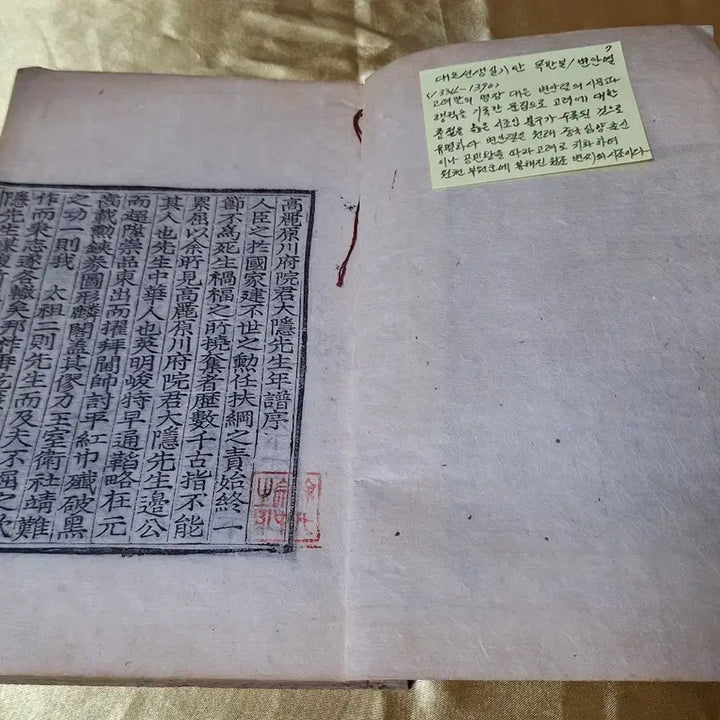 高麗原川府院君大隱先生年譜序
人臣之於國家建不世之勳任扶綱之責始終一
節不爲死生禍福之所撓奪者歷數千古指不能
累屈以余所見高麗原川府院君大隱先生邊公
其人也先生中華人也英明峻特早通韜略在元
而超陞崇品東出而擢拜閫帥討平紅巾殲破黑
齒載勳鐵券圖形麟閣蓋其僇力王室衛社靖難
之功一則我 太祖二則先生而及夫不屈之
作而秉志遂各
隱先生
대은선생실기 만 목판본/변안열
(1334-1390)
고려말의 명장 대은 변안열의 시문과
행적을 기록한 문집으로 고려에 대한
충절을 읊은 시조인 불굴가 수록된 것으로
유명하다 변안열은 원래 중국 심양 출신
이나 공민왕을 따라 고려로 귀화하여
원천 부원군에 봉해진 원주 변씨의 시조이다